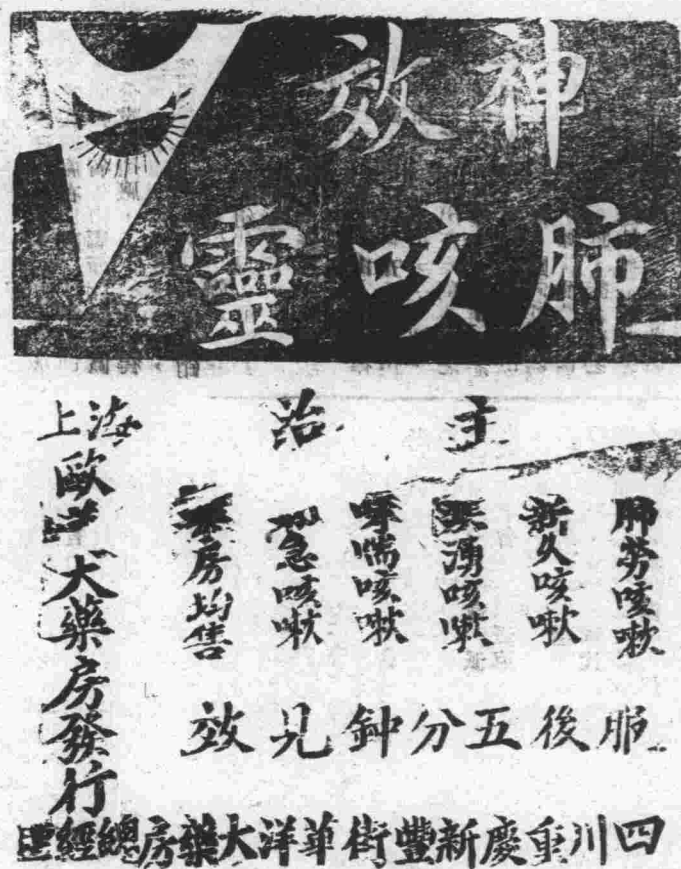 神效
肺咳靈
主治
肺勞咳嗽
新久咳嗽
湧咳嗽
哮喘咳嗽
急咳嗽
房均售
服後五分鈡見效
上海歐大藥房發行
四川重慶新豐街華洋大藥房總經